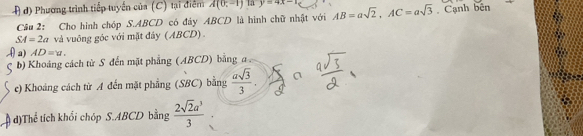 d) Phương trình tiếp tuyến của (C) tại điểm A(0;-1) là y = 4x - 1
Câu 2: Cho hình chóp S.ABCD có đáy ABCD là hình chữ nhật với AB = a√2 , AC = a√3 . Cạnh bên
SA = 2a và vuông góc với mặt đáy (ABCD).
a) AD = a .
b) Khoảng cách từ S đến mặt phẳng (ABCD) bằng a .
S
c) Khoảng cách từ A đến mặt phẳng (SBC) bằng a√3/3 . a√3/2
S
d)Thể tích khối chóp S.ABCD bằng 2√2a³/3 .